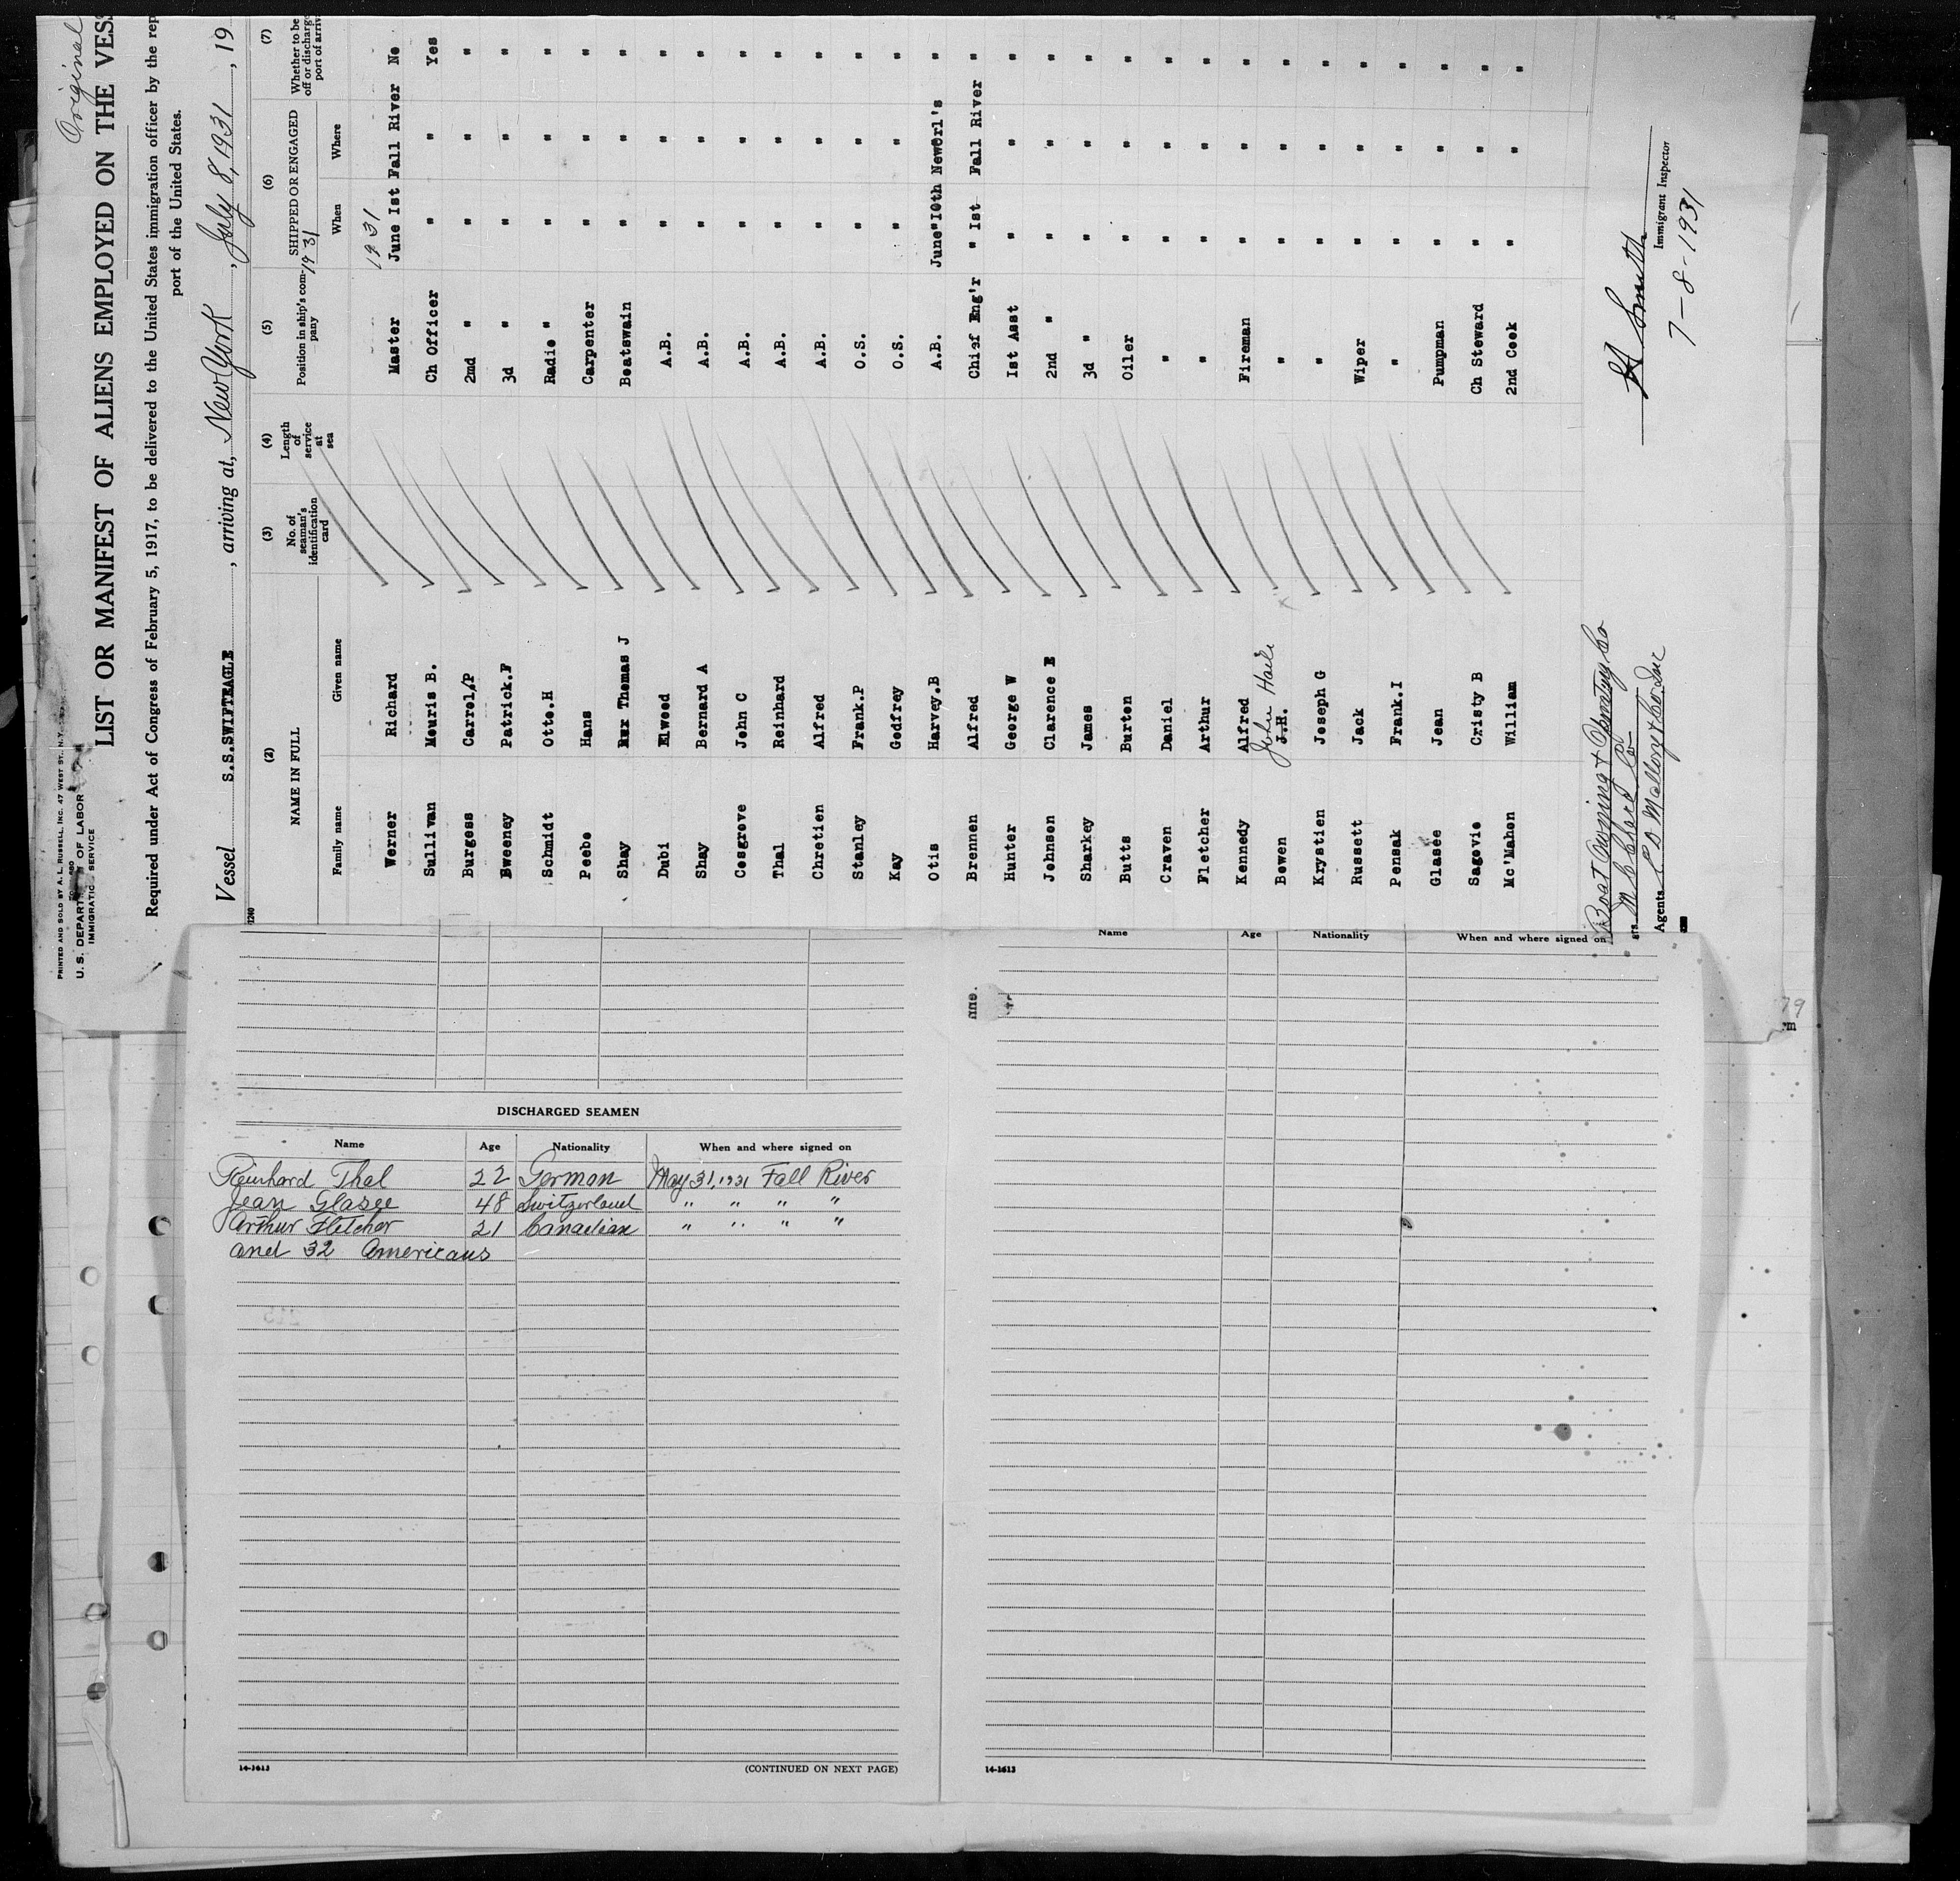 Original
PRINTED AND SOLD BY A. L. RUSSELL, INC. 47 WEST ST., N.Y.
U. S. DEPARTMENT OF LABOR
IMMIGRATION SERVICE
LIST OR MANIFEST OF ALIENS EMPLOYED ON THE VESS
Required under Act of Congress of February 5, 1917, to be delivered to the United States immigration officer by the rep
port of the United States.
Vessel S.S.SWIFTEAGLE, arriving at, New York, July 8, 1931, 19
1240
(2) (3) (4) (5) (6) (7)
NAME IN FULL No. of seaman's identification card Length of service at sea Position in ship's company SHIPPED OR ENGAGED Whether to be off or discharge port of arriv
1931
Family name Given name When Where
1931
Werner Richard Master June 1st Fall River No
Sullivan Meuris B. Ch Officer " " Yes
Burgess Carrol/P 2nd " " " "
Sweeney Patrick.F 3d " " " "
Schmidt Otto.H Radio " " " "
Peebo Hans Carpenter " " "
Shay Thomas J Boatswain " " "
Dubi Elwood A.B. " " "
Shay Bernard A A.B. " " "
Cosgrove John C A.B. " " "
Thal Reinhard A.B. " " "
Chretien Alfred A.B. " " "
Stanley Frank.P O.S. " " "
Kay Godfrey O.S. " " "
Otis Harvey.B A.B. June"10th NewOrl's "
Brennen Alfred Chief Eng'r " 1st Fall River "
Hunter George W 1st Asst " " "
Johnson Clarence E 2nd " " " "
Sharkey James 3d " " " "
Butts Burton Oiler " " "
Craven Daniel " " " "
Fletcher Arthur " " " "
Kennedy Alfred Fireman " " "
John Haile
Bowen J.H. " " " "
Krystien Joseph G " " " "
Russett Jack Wiper " " "
Pensak Frank.I " " " "
Glasée Jean Pumpman " " "
Sagovie Cristy B Ch Steward " " "
Mc'Mahon William 2nd Cook " " "
Boat Owning & Operating Co
Agents C D Mallory & Co. Inc
Smith
Immigrant Inspector
7-8-1931
DISCHARGED SEAMEN
Name Age Nationality When and where signed on
Reinhard Thal 22 German May 31, 1931 Fall River
Jean Glasee 48 Switzerland " " " "
Arthur Fletcher 21 Canadian " " " "
and 32 Americans
14-1613
(CONTINUED ON NEXT PAGE)
Name Age Nationality When and where signed on
14-1613